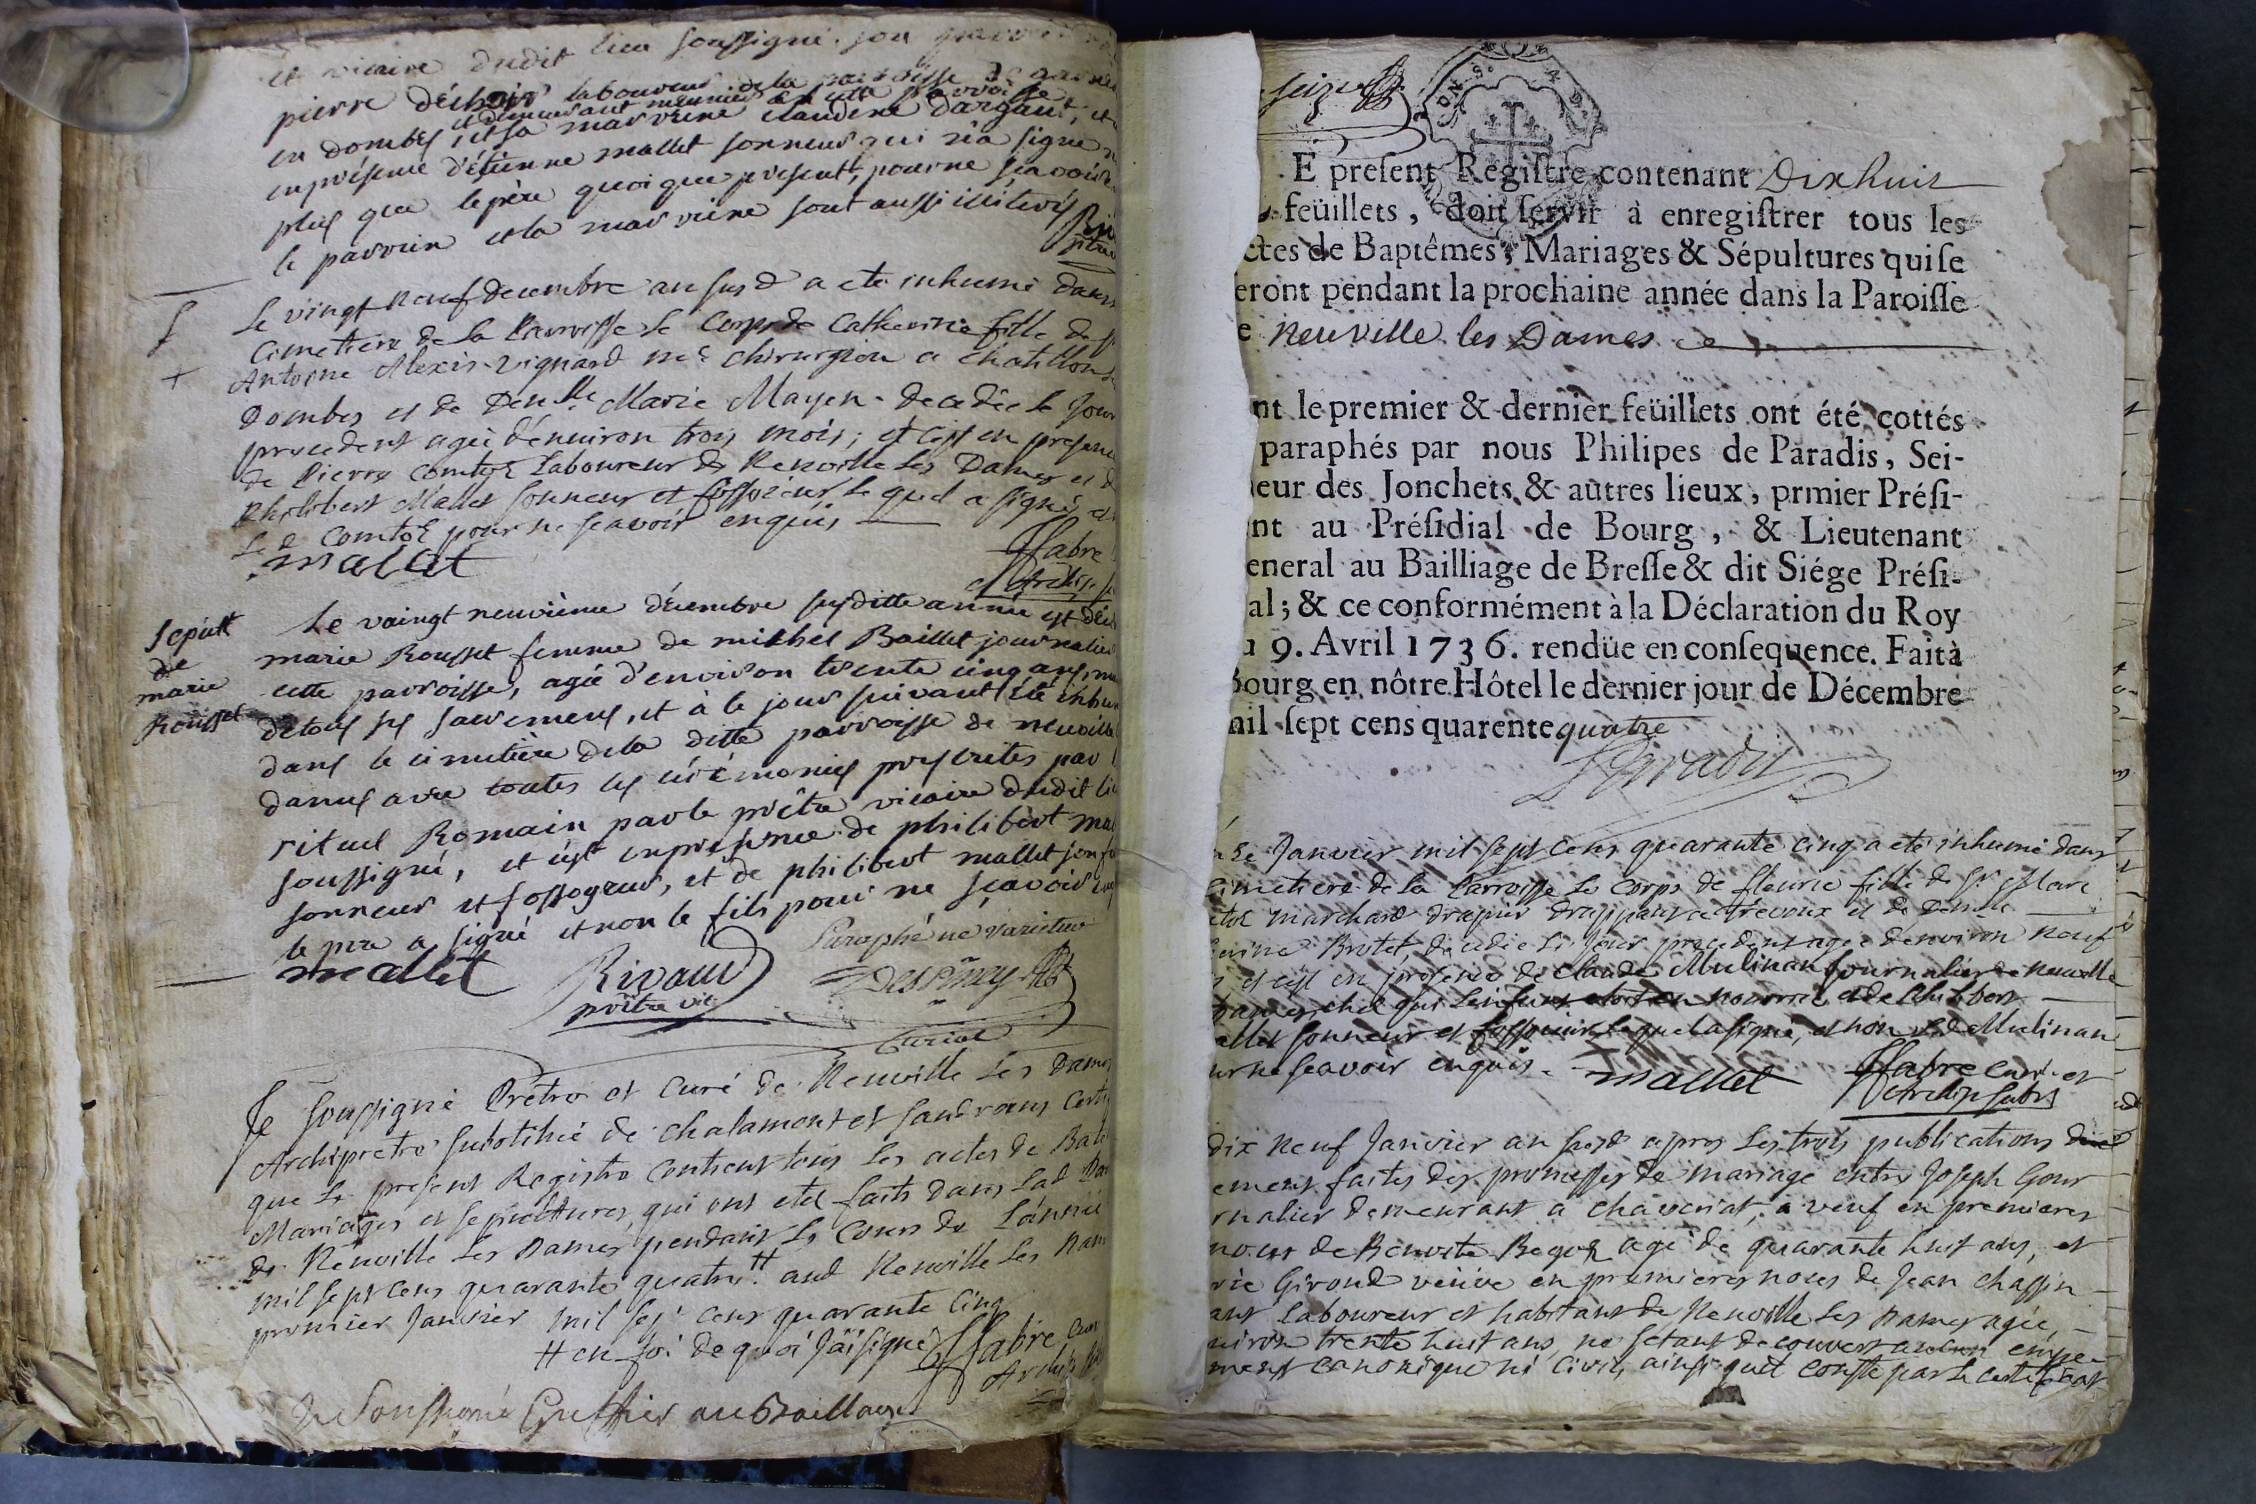 et vicaire dudit lieu soussigné. son
pierre laboureur de la parroisse
et demeurant meunier en cette parroisse
en dombes, et sa marreine claudine dargaut, et
en présence d'étienne mallet sonneur qui n'a signé
plus que le père quoique présent, pour ne sçavoir
le parrein et la marreine sont aussi illiterés
Le vingt neuf decembre an susd a ete inhumé dans
Cimetiere de la Parroisse le Corps de Catherine fille de sr
Antoine Alexis Vignard me chirurgien a Chatillon
Dombes et de Demlle Marie Mayen decedée le jour
precedent agée d'environ trois mois; et c'est en presence
de Pierre Comtet Laboureur de Neuville les Dames et d
Philibert Mallet sonneur et fossoieur, lequel a signé, et
Led Comtet pour ne scavoir enquis
malat
ffabre
Le vaingt neuvième décembre susditte année est déc
Sepult
de
marie
Rousset
marie Rousset femme de michel Baillet journalier
cette parroisse, agée d'environ trente cinq ans, mu
de tous ses sacremens, et à le jour suivant été inhum
dans le cimetière de la ditte parroisse de neuville
dames avec toutes les cérémonies prescrites par l
rituel Romain par le prêtre vicaire dudit li
soussigné, et c'est en présence de philibert mal
sonneur et fossoyeur, et de philibert mallet son fi
le pere a signé et non le fils pour ne sçavoir enq
mallet
Rivaud
prêtre vic.
Paraphé ne varietur
Je soussigné Prêtre et Curé de Neuville les Dames
Archiprêtre substitué de chalamont et sandrans certi
que le present Registre contient tous les actes de Bat
Mariages et sepultures, qui ont eté faits dans lad Par
de Neuville les Dames pendant le Cours de L'année
mil sept cens quarante quatre # aud Neuville les Dam
premier Janvier mil sep cens quarante cinq
# en foi de quoi j'ai signé
ffabre Curé
Je soussigné Greffier au Bailliage
seize
E present Registre contenant Dixhuit
feüillets, doit servir à enregistrer tous les
ctes de Baptêmes, Mariages & Sépultures qui se
eront pendant la prochaine année dans la Paroisse
e Neuville les Dames
nt le premier & dernier feüillets ont été cottés
paraphés par nous Philipes de Paradis, Sei-
neur des Jonchets & autres lieux, prmier Présì-
nt au Présidial de Bourg, & Lieutenant
eneral au Bailliage de Bresse & dit Siége Présì-
al; & ce conformément à la Déclaration du Roy
u 9. Avril 1736. rendüe en consequence. Fait à
Bourg en nôtre Hôtel le dernier jour de Décembre
mil sept cens quarente quatre
Paradis
Janvier mil sept cens quarante cinq a eté inhumé dans
Cimetiere de la Parroisse le Corps de fleurie fille de sr Marc
marchand drapier drappant a Trevoux et de Demlle
Brotet, decedée le jour precedent agée d'environ neuf
et c'est en presence de Claude Mulinan journalier de Neuville
Dames chez qui l'enfant etoit en nourrice et de Philibert
allet sonneur et fossoieur lequel a signé, et non led Mulinan
our ne scavoir enquis.
mallet
ffabre curé et
Archip. subs
dix neuf Janvier an susd apres les trois publications
ement faites des promesses de mariage entre Joseph Gour
rnalier demeurant a chaveriat, veuf en premieres
noces de Benoite agé de quarante huit ans, et
rie Giroud veuve en premieres noces de Jean Chassin
ant Laboureur et habitant de Neuville les Dames agée
nviron trente huit ans, ne s'etant decouvert aucun empe-
ment canonique ni civil, ainsi quil conste par le certificat